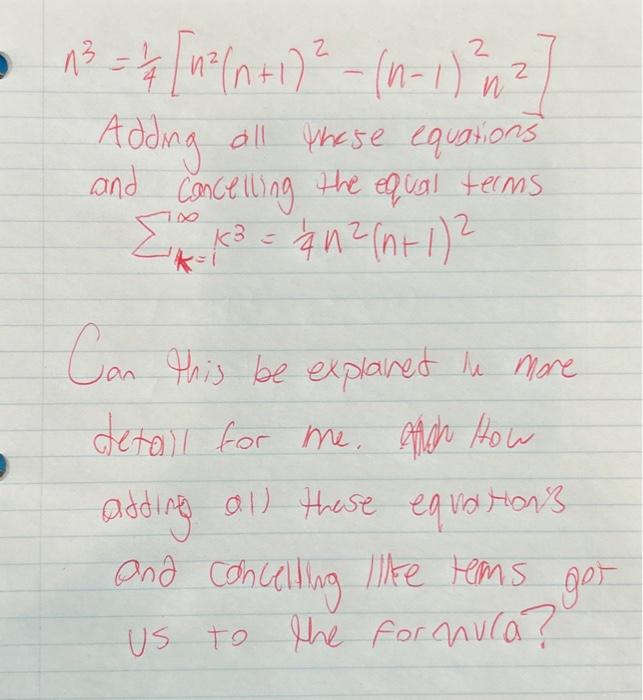 n³ = 1/4 [n²(n+1)² - (n-1)² n²]
Adding all these equations
and cancelling the equal terms
∑_{k=1}^{∞} k³ = 1/4 n²(n+1)²
Can this be explained in more
detail for me. How
adding all these equations
and cancelling like terms got
us to the formula?